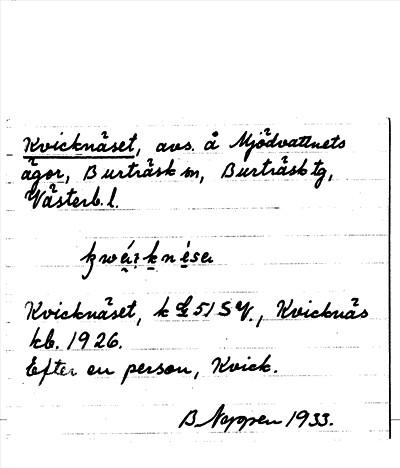 Kvicknäset, avs. å Mjödvattnets
ägor, Burträsk sn, Burträsk tg,
Västerb. l.
Kvicknäset, k 51 SV., Kvicknäs
kb. 1926.
Efter en person, Kvick.
B Noppen 1933.